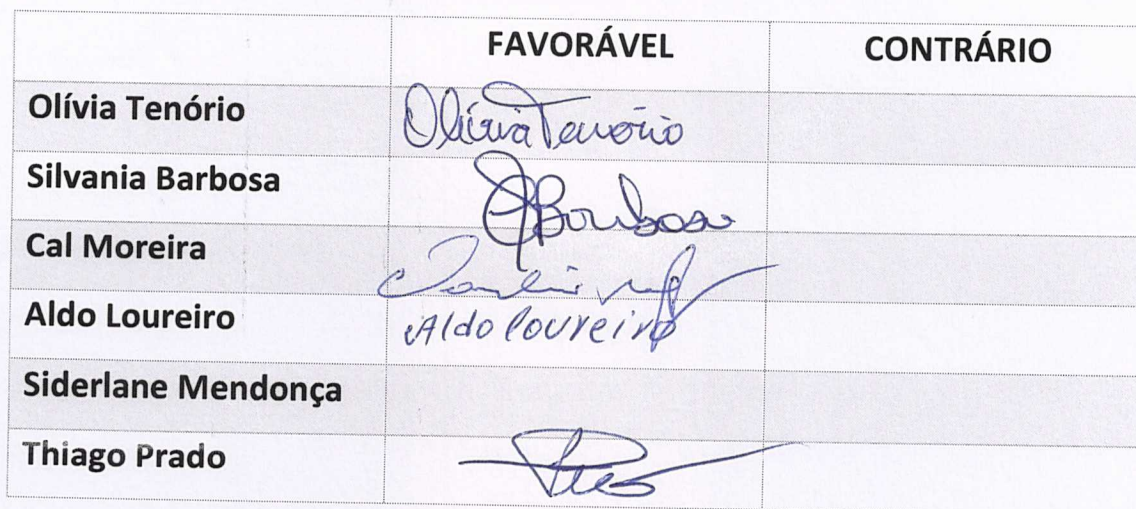 FAVORÁVEL CONTRÁRIO
Olívia Tenório Olívia Tenório
Silvania Barbosa Barbosa
Cal Moreira
Aldo Loureiro Aldo Loureiro
Siderlane Mendonça
Thiago Prado